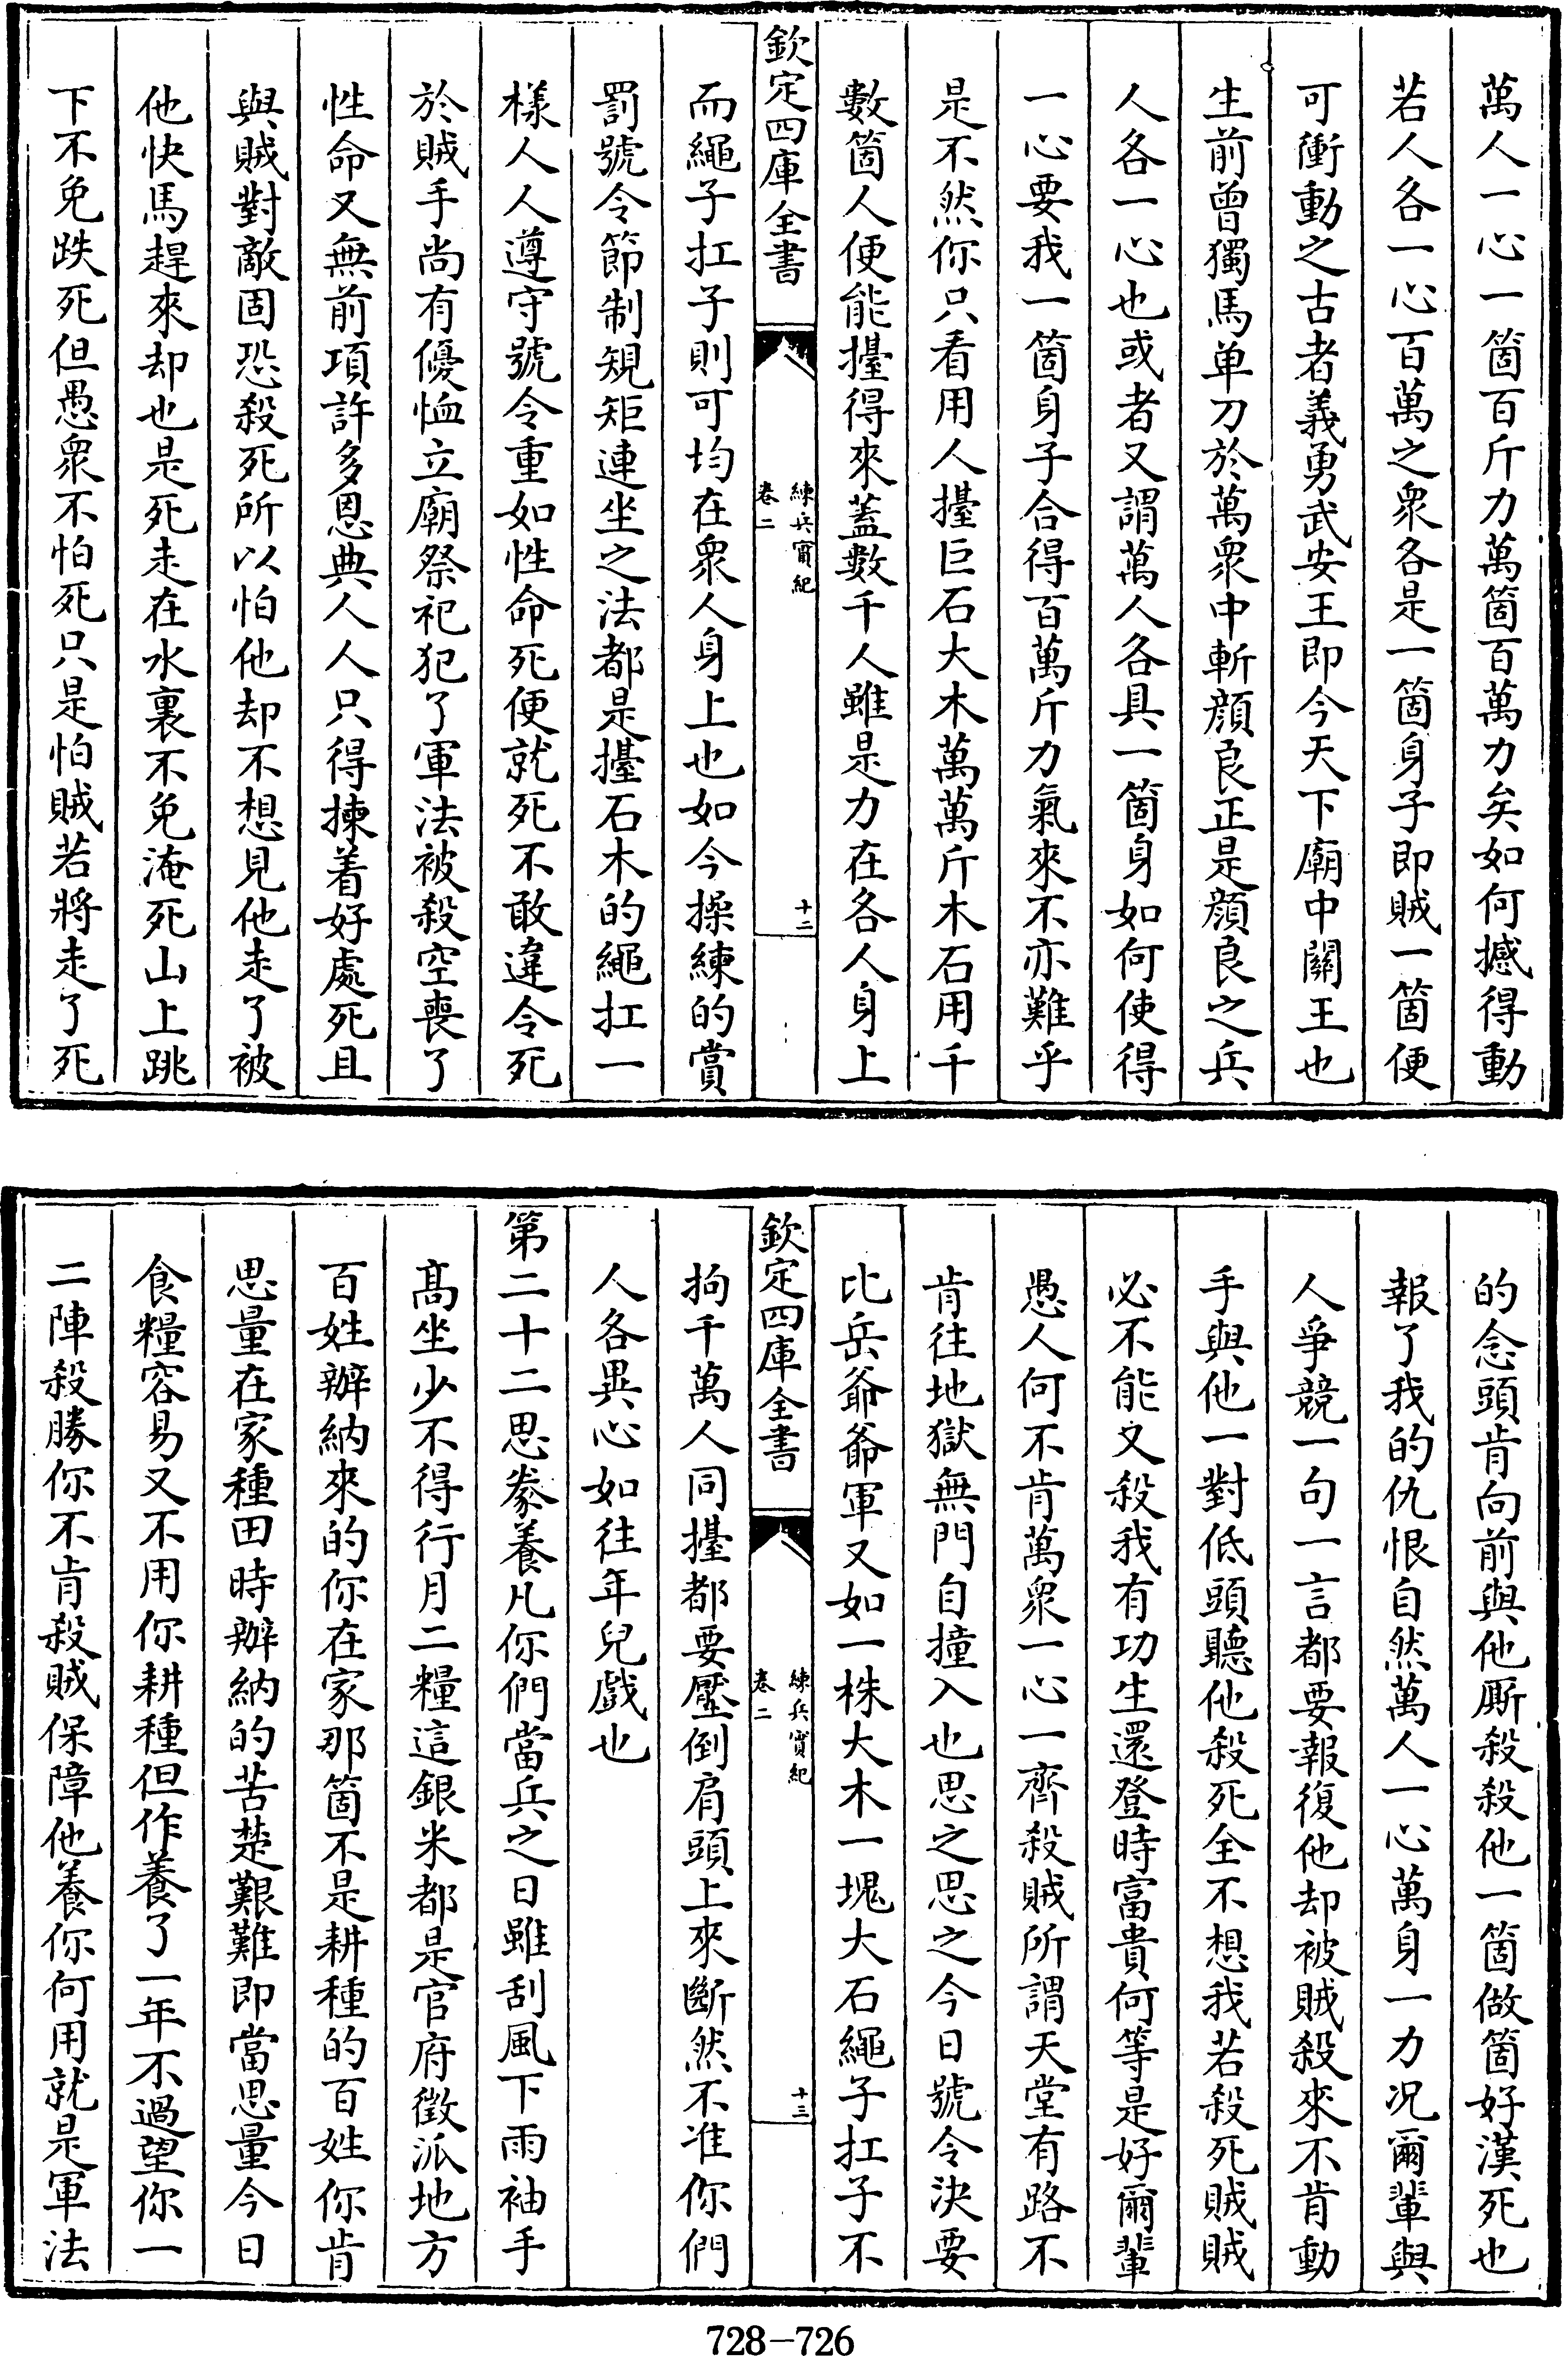 萬人一心一箇百斤力萬箇百萬力矣如何撼得動
若人各一心百萬之衆各是一箇身子即賊一箇便
可衝動之古者義勇武安王即今天下廟中關王也
生前曾獨馬单刀於萬衆中斬顔良正是顔良之兵
人各一心也或者又謂萬人各具一箇身如何使得
一心要我一箇身子合得百萬斤力氣來不亦難乎
是不然你只看用人擡巨石大木萬萬斤木石用千
數箇人便能擡得來蓋數千人雖是力在各人身上
欽定四庫全書
練兵實紀
卷二
十二
而繩子扛子則可均在衆人身上也如今操練的賞
罰號令節制規矩連坐之法都是擡石木的繩扛一
樣人人遵守號令重如性命死便就死不敢違令死
於賊手尚有優恤立廟祭祀犯了軍法被殺空喪了
性命又無前項許多恩典人人只得揀着好處死且
與賊對敵固恐殺死所以怕他却不想見他走了被
他快馬趕來却也是死走在水裏不免淹死山上跳
下不免跌死但愚衆不怕死只是怕賊若將走了死
的念頭肯向前與他厮殺殺他一箇做箇好漢死也
報了我的仇恨自然萬人一心萬身一力况爾輩與
人爭競一句一言都要報復他却被賊殺來不肯動
手與他一對低頭聽他殺死全不想我若殺死賊賊
必不能又殺我有功生還登時富貴何等是好爾輩
愚人何不肯萬衆一心一齊殺賊所謂天堂有路不
肯往地獄無門自撞入也思之思之今日號令決要
比岳爺爺軍又如一株大木一塊大石繩子扛子不
欽定四庫全書
練兵實紀
卷二
十三
拘千萬人同擡都要壓倒肩頭上來斷然不准你們
人各異心如往年兒戲也
第二十二思豢養凡你們當兵之日雖刮風下雨袖手
高坐少不得行月二糧這銀米都是官府徵派地方
百姓辦納來的你在家那箇不是耕種的百姓你肯
思量在家種田時辦納的苦楚艱難即當思量今日
食糧容易又不用你耕種但作養了一年不過望你一
二陣殺勝你不肯殺賊保障他養你何用就是軍法
728-726